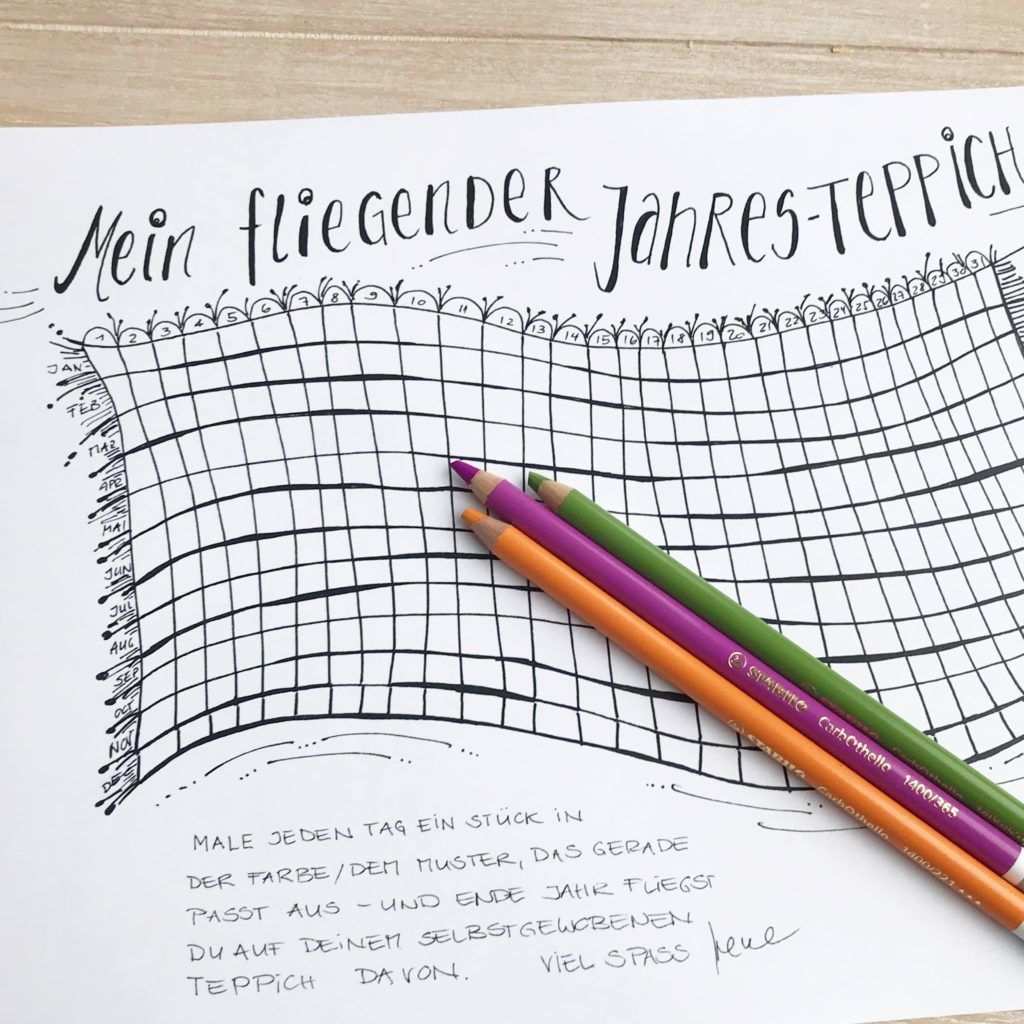 Mein fliegender Jahres-Teppich
1 2 3 4 5 6 7 8 9 10 11 12 13 14 15 16 17 18 19 20 21 22 23 24 25 26 27 28 29 30 31
JAN
FEB
MÄR
APR
MAI
JUN
JUL
AUG
SEP
OCT
NOV
DES
STABILO CarbOthello 1400/365
STABILO CarbOthello
MALE JEDEN TAG EIN STÜCK IN
DER FARBE/DEM MUSTER, DAS GERADE
PASST AUS - UND ENDE JAHR FLIEGST
DU AUF DEINEM SELBSTGEWOBENEN
TEPPICH DAVON. VIEL SPASS